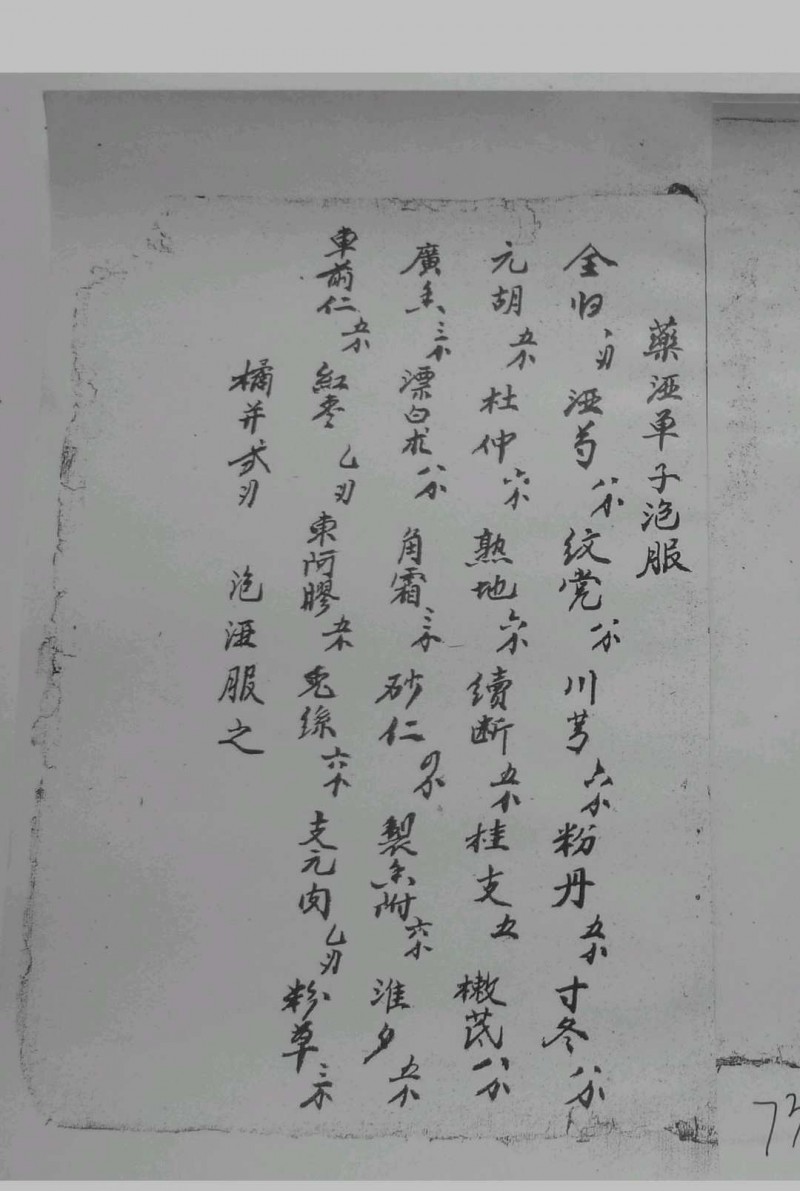 藥洒单子泡服
全归 乙刃 洒芍 八分 纹党 八分 川芎 六分 粉丹 五分 寸冬 八分
元胡 五分 杜仲 六分 熟地 六分 續断 五分 桂支 五 嫩芪 八分
廣香 三分 漂白术 八分 角霜 三分 砂仁 四分 製香附 六分 淮夕 五分
車前仁 五分 紅枣 乙刃 東阿膠 五分 兎絲 六分 支元肉 乙刃 粉草 三分
橘并 弍刃 泡洒服之